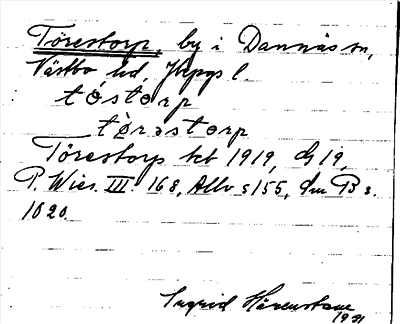 Törestorp, by i Dannäs sn,
Västbo hd, Jkpgs l.
tóstorp
tòrəstorp
Törestorp kb 1919, G 19,
P. Wies. III. 168, Allv s 155, dm B s.
1020.
Ingrid Härenstam
1931